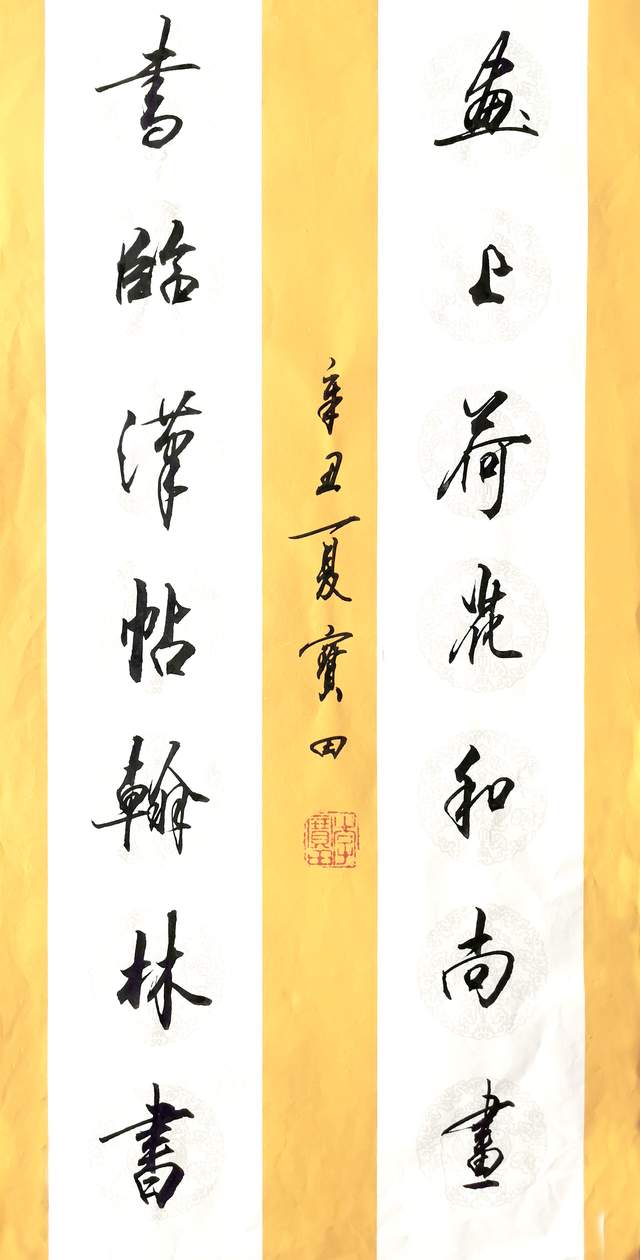 畫上荷花和尚畫
書臨漢帖翰林書
辛丑夏寶田
李寶田